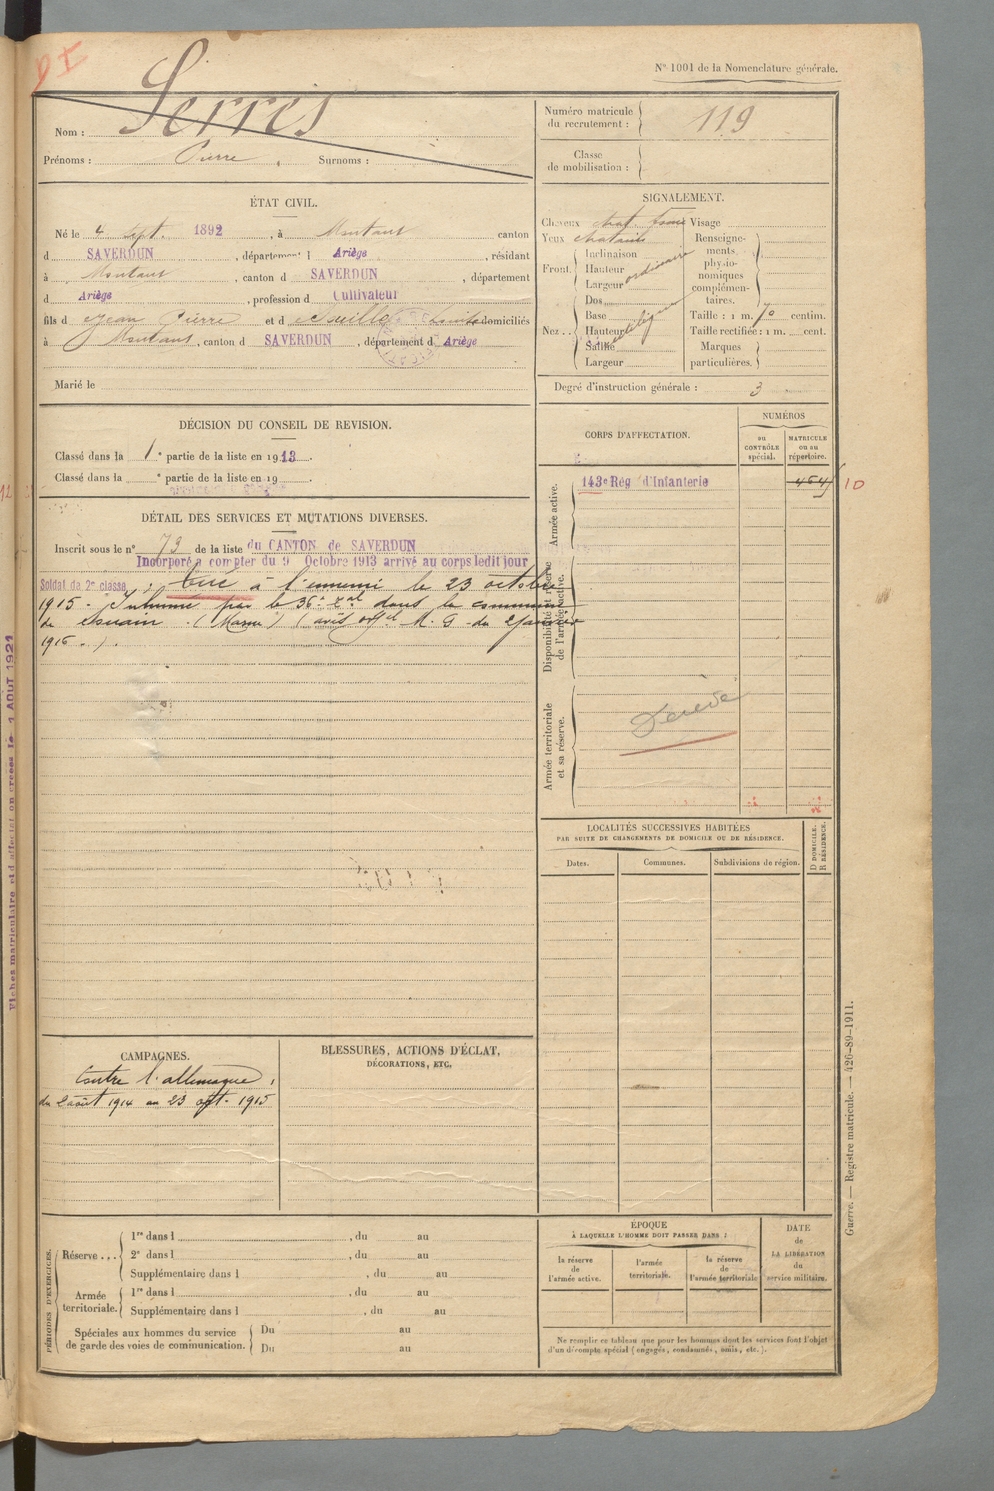 N° 1001 de la Nomenclature générale.
Serres
Nom :
Prénoms : Pierre , Surnoms :
Numéro matricule du recrutement : 119
Classe de mobilisation :
ÉTAT CIVIL.
Né le 4 Sept. 1892, à Montaut canton
d SAVERDUN, département d Ariège, résidant
à Montaut, canton d SAVERDUN, département
d Ariège, profession d Cultivateur
fils d Jean Pierre et d domiciliés
à Montaut, canton d SAVERDUN, département d Ariège
Marié le
SIGNALEMENT.
Cheveux chat. foncé Visage
Yeux chatains
Front Inclinaison
Hauteur ordinaire
Largeur
Nez Dos
Base
Hauteur
Saillie
Largeur
Renseignements physionomiques complémentaires.
Taille : 1 m. 70 centim.
Taille rectifiée : 1 m. cent.
Marques particulières.
Degré d'instruction générale : 3
DÉCISION DU CONSEIL DE REVISION.
Classé dans la 1e partie de la liste en 1913.
Classé dans la e partie de la liste en 19 .
DÉTAIL DES SERVICES ET MUTATIONS DIVERSES.
Inscrit sous le n° 73 de la liste du CANTON de SAVERDUN
Incorporé à compter du 9 Octobre 1913 arrivé au corps ledit jour
Soldat de 2e classe, tué à l'ennemi le 23 octobre
1915 - Inhumé par le 36e dans la commune
de Souain (Marne) (avis off el M. G du 2 janvier
1916 . ) .
CORPS D'AFFECTATION.
NUMÉROS
au CONTRÔLE spécial.
MATRICULE ou au répertoire.
Armée active.
143e Rég d'Infanterie
10
Disponibilité et réserve de l'armée active.
Armée territoriale et sa réserve.
LOCALITÉS SUCCESSIVES HABITÉES
PAR SUITE DE CHANGEMENTS DE DOMICILE OU DE RÉSIDENCE.
D DOMICILE.
R RÉSIDENCE.
Dates. Communes. Subdivisions de région.
CAMPAGNES.
Contre l'allemagne,
du 2 août 1914 au 23 oct. 1915
BLESSURES, ACTIONS D'ÉCLAT,
DÉCORATIONS, ETC.
PÉRIODES D'EXERCICES.
Réserve ... 1re dans l , du au
2e dans l , du au
Supplémentaire dans l , du au
Armée territoriale. 1re dans l , du au
Supplémentaire dans l , du au
Spéciales aux hommes du service de garde des voies de communication. Du au
Du au
ÉPOQUE
À LAQUELLE L'HOMME DOIT PASSER DANS :
la réserve de l'armée active.
l'armée territoriale.
la réserve de l'armée territoriale
DATE de LA LIBÉRATION du service militaire.
Ne remplir ce tableau que pour les hommes dont les services font l'objet
d'un décompte spécial (engagés, condamnés, omis, etc.).
Guerre. — Registre matricule. — 426-89-1911.